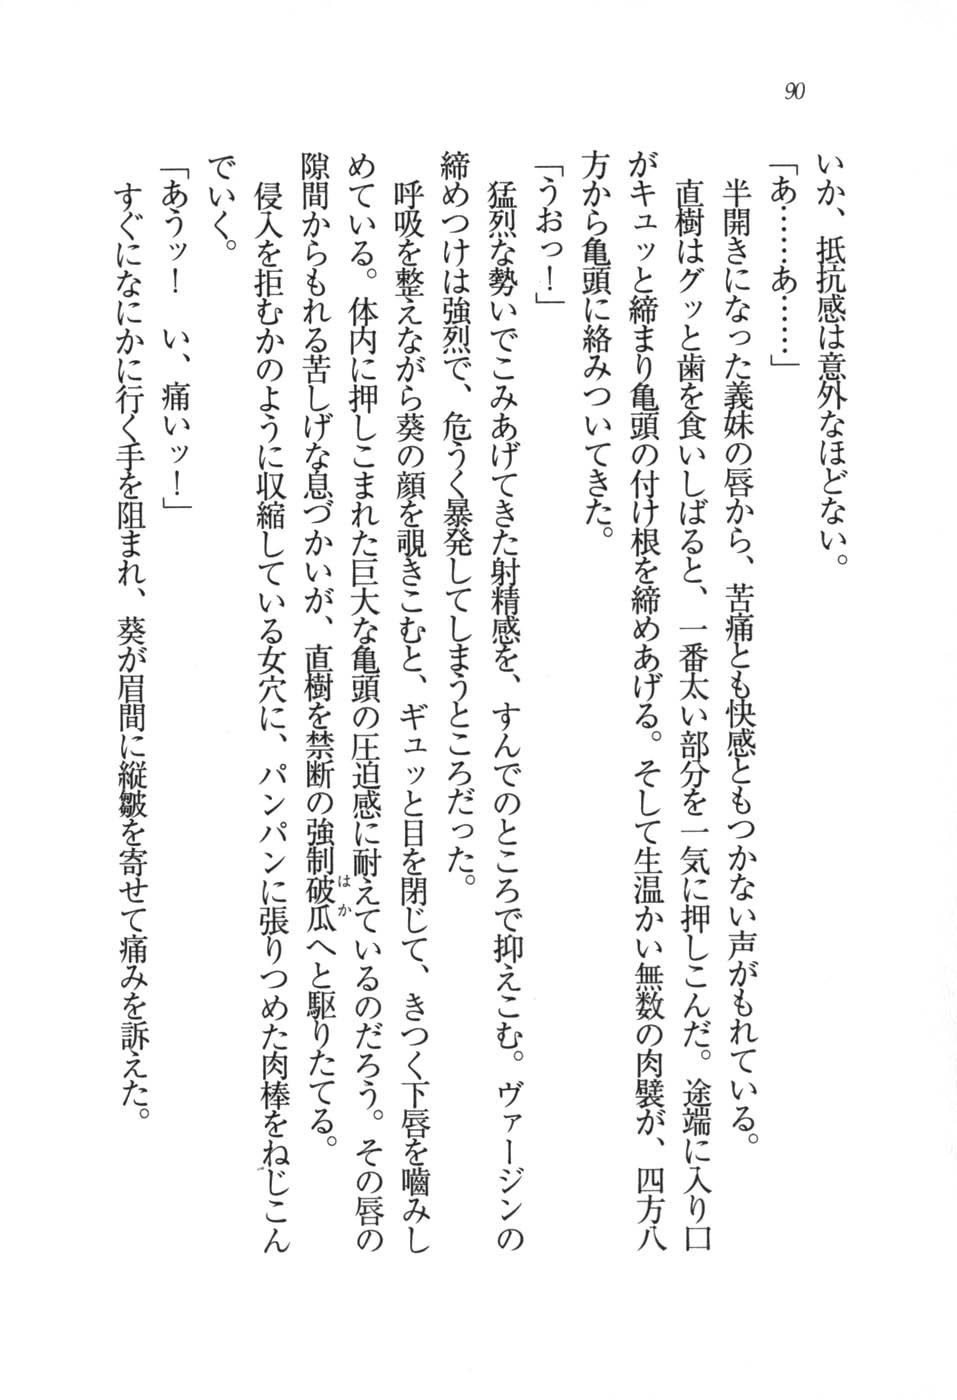 90
いか、抵抗感は意外なほどない。
「あ……あ……」
半開きになった義妹の唇から、苦痛とも快感ともつかない声がもれている。
直樹はグッと歯を食いしばると、一番太い部分を一気に押しこんだ。途端に入り口
がキュッと締まり亀頭の付け根を締めあげる。そして生温かい無数の肉襞が、四方八
方から亀頭に絡みついてきた。
「うおっ！」
猛烈な勢いでこみあげてきた射精感を、すんでのところで抑えこむ。ヴァージンの
締めつけは強烈で、危うく暴発してしまうところだった。
呼吸を整えながら葵の顔を覗きこむと、ギュッと目を閉じて、きつく下唇を嚙みし
めている。体内に押しこまれた巨大な亀頭の圧迫感に耐えているのだろう。その唇の
隙間からもれる苦しげな息づかいが、直樹を禁断の強制破瓜はかへと駆りたてる。
侵入を拒むかのように収縮している女穴に、パンパンに張りつめた肉棒をねじこん
でいく。
「あうッ！　い、痛いッ！」
すぐになにかに行く手を阻まれ、葵が眉間に縦皺を寄せて痛みを訴えた。